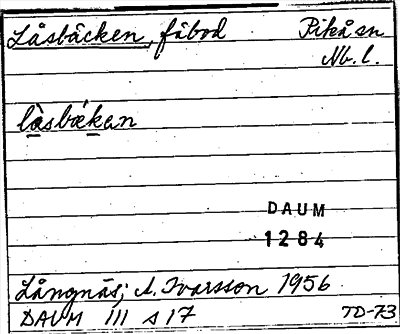 Låsbäcken, fäbod Piteå sn
Nb. l.
làsbæ̀kan
DAUM
1284
Långnäs; A. Ivarsson 1956
DAUM III A 17 TD-73